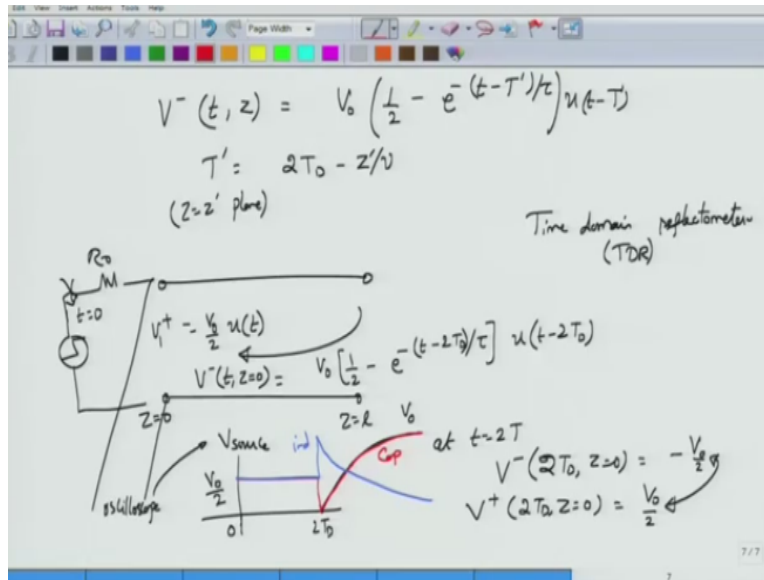 Edit View Insert Actions Tools Help
Page Width
V⁻(t, z) = V₀ (1/2 - e^-(t-T')/τ) u(t-T)
T' = 2T₀ - z'/v
(z=z' plane)
Time domain reflectometer
(TDR)
R₀
t=0
V₁⁺ = V₀/2 u(t)
V⁻(t, z=0) = V₀ [1/2 - e^-(t-2T₀)/τ] u(t-2T₀)
z=0
z=l
oscilloscope
Vsource
ind
Cap
V₀
V₀/2
0
2T₀
at t=2T
V⁻(2T₀, z=0) = -V₀/2
V⁺(2T₀, z=0) = V₀/2
7/7
7